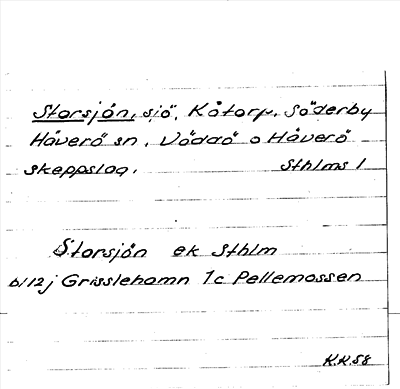 Storsjön, sjö, Kåtorp, Söderby
Häverö sn, Väddö o Häverö
skeppslag. Sthlms l
Storsjön ek Sthlm
bl 12j Grisslehamn 1c Pellemossen
K.K.58